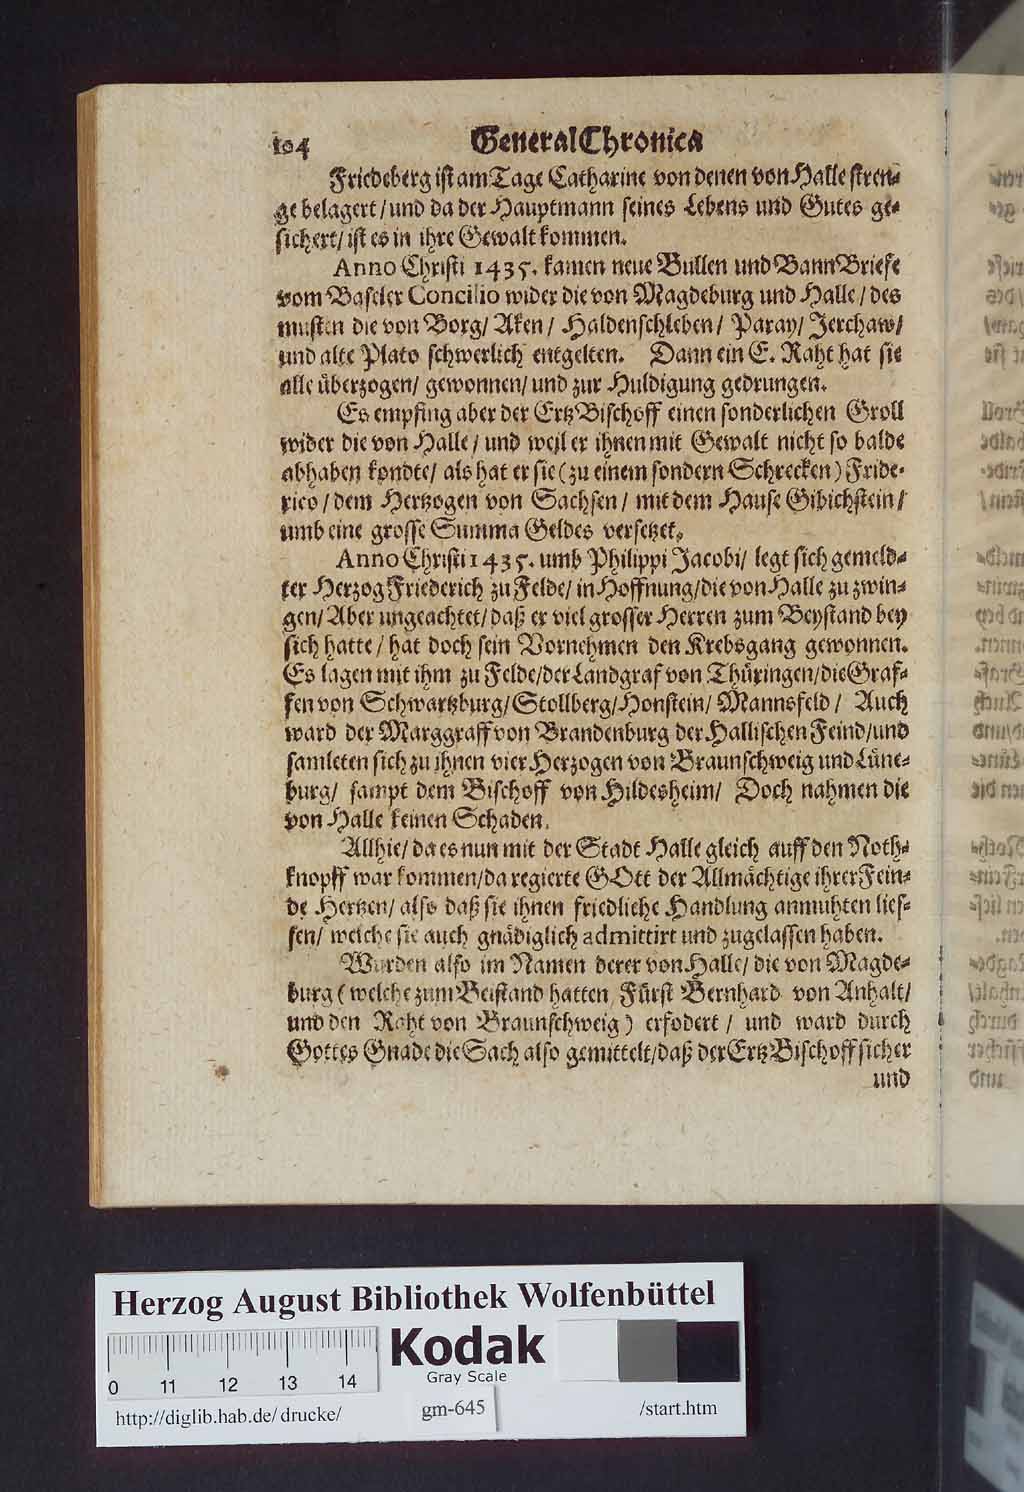 104 General Chronica
Friedeberg ist am Tage Catharine von denen von Halle stren-
ge belagert / und da der Hauptmann seines Lebens und Gutes ge-
sichert / ist es in ihre Gewalt kommen.
Anno Christi 1435. kamen neue Bullen und Bann Briefe
vom Baseler Concilio wider die von Magdeburg und Halle / des
musten die von Borg / Aken / Haldenschleben / Paray / Jerchaw /
und alte Plato schwerlich entgelten. Dann ein E. Raht hat sie
alle überzogen / gewonnen / und zur Huldigung gedrungen.
Es empfing aber der Ertz Bischoff einen sonderlichen Groll
wider die von Halle / und weil er ihnen mit Gewalt nicht so balde
abhaben kondte / als hat er sie ( zu einem sondern Schrecken ) Fride-
rico / dem Hertzogen von Sachsen / mit dem Hause Gibichstein /
umb eine grosse Summa Geldes versetzet.
Anno Christi 1435. umb Philippi Jacobi / legt sich gemeld-
ter Herzog Friederich zu Felde / in Hoffnung / die von Halle zu zwin-
gen / Aber ungeachtet / daß er viel grosser Herren zum Beystand bey
sich hatte / hat doch sein Vornehmen den Krebsgang gewonnen.
Es lagen mit ihm zu Felde / der Landgraf von Thüringen / die Graf-
fen von Schwartzburg / Stollberg / Honstein / Mannsfeld / Auch
ward der Marggraff von Brandenburg der Hallischen Feind / und
samleten sich zu ihnen vier Herzogen von Braunschweig und Lüne-
burg / sampt dem Bischoff von Hildesheim / Doch nahmen die
von Halle keinen Schaden.
Allhie / da es nun mit der Stadt Halle gleich auff den Noth-
knopff war kommen / da regierte GOtt der Allmächtige ihrer Fein-
de Hertzen / also daß sie ihnen friedliche Handlung anmuhten lies-
sen / welche sie auch gnädiglich admittirt und zugelassen haben.
Wurden also im Namen derer von Halle / die von Magde-
burg ( welche zum Beistand hatten Fürst Bernhard von Anhalt /
und den Raht von Braunschweig ) erfodert / und ward durch
Gottes Gnade die Sach also gemittelt / daß der Ertz Bischoff sicher
und
Herzog August Bibliothek Wolfenbüttel
Kodak
Gray Scale
0 11 12 13 14
http://diglib.hab.de/drucke/ gm-645 /start.htm